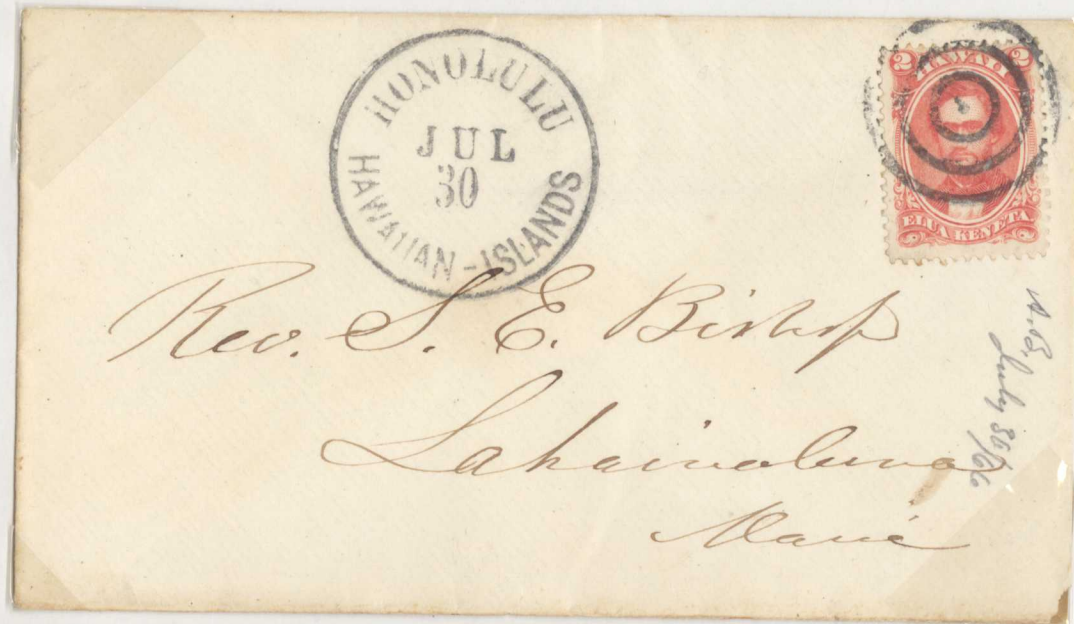 HONOLULU
JUL
30
HAWAIIAN-ISLANDS
2 HAWAII 2
ELUA KENETA
Rev. S. E. Bishop
Lahainaluna
Maui
July 30/66